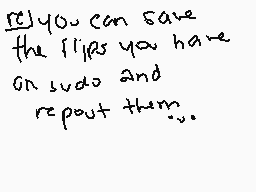 re) you can save
the flips you have
on sudo and
repout them